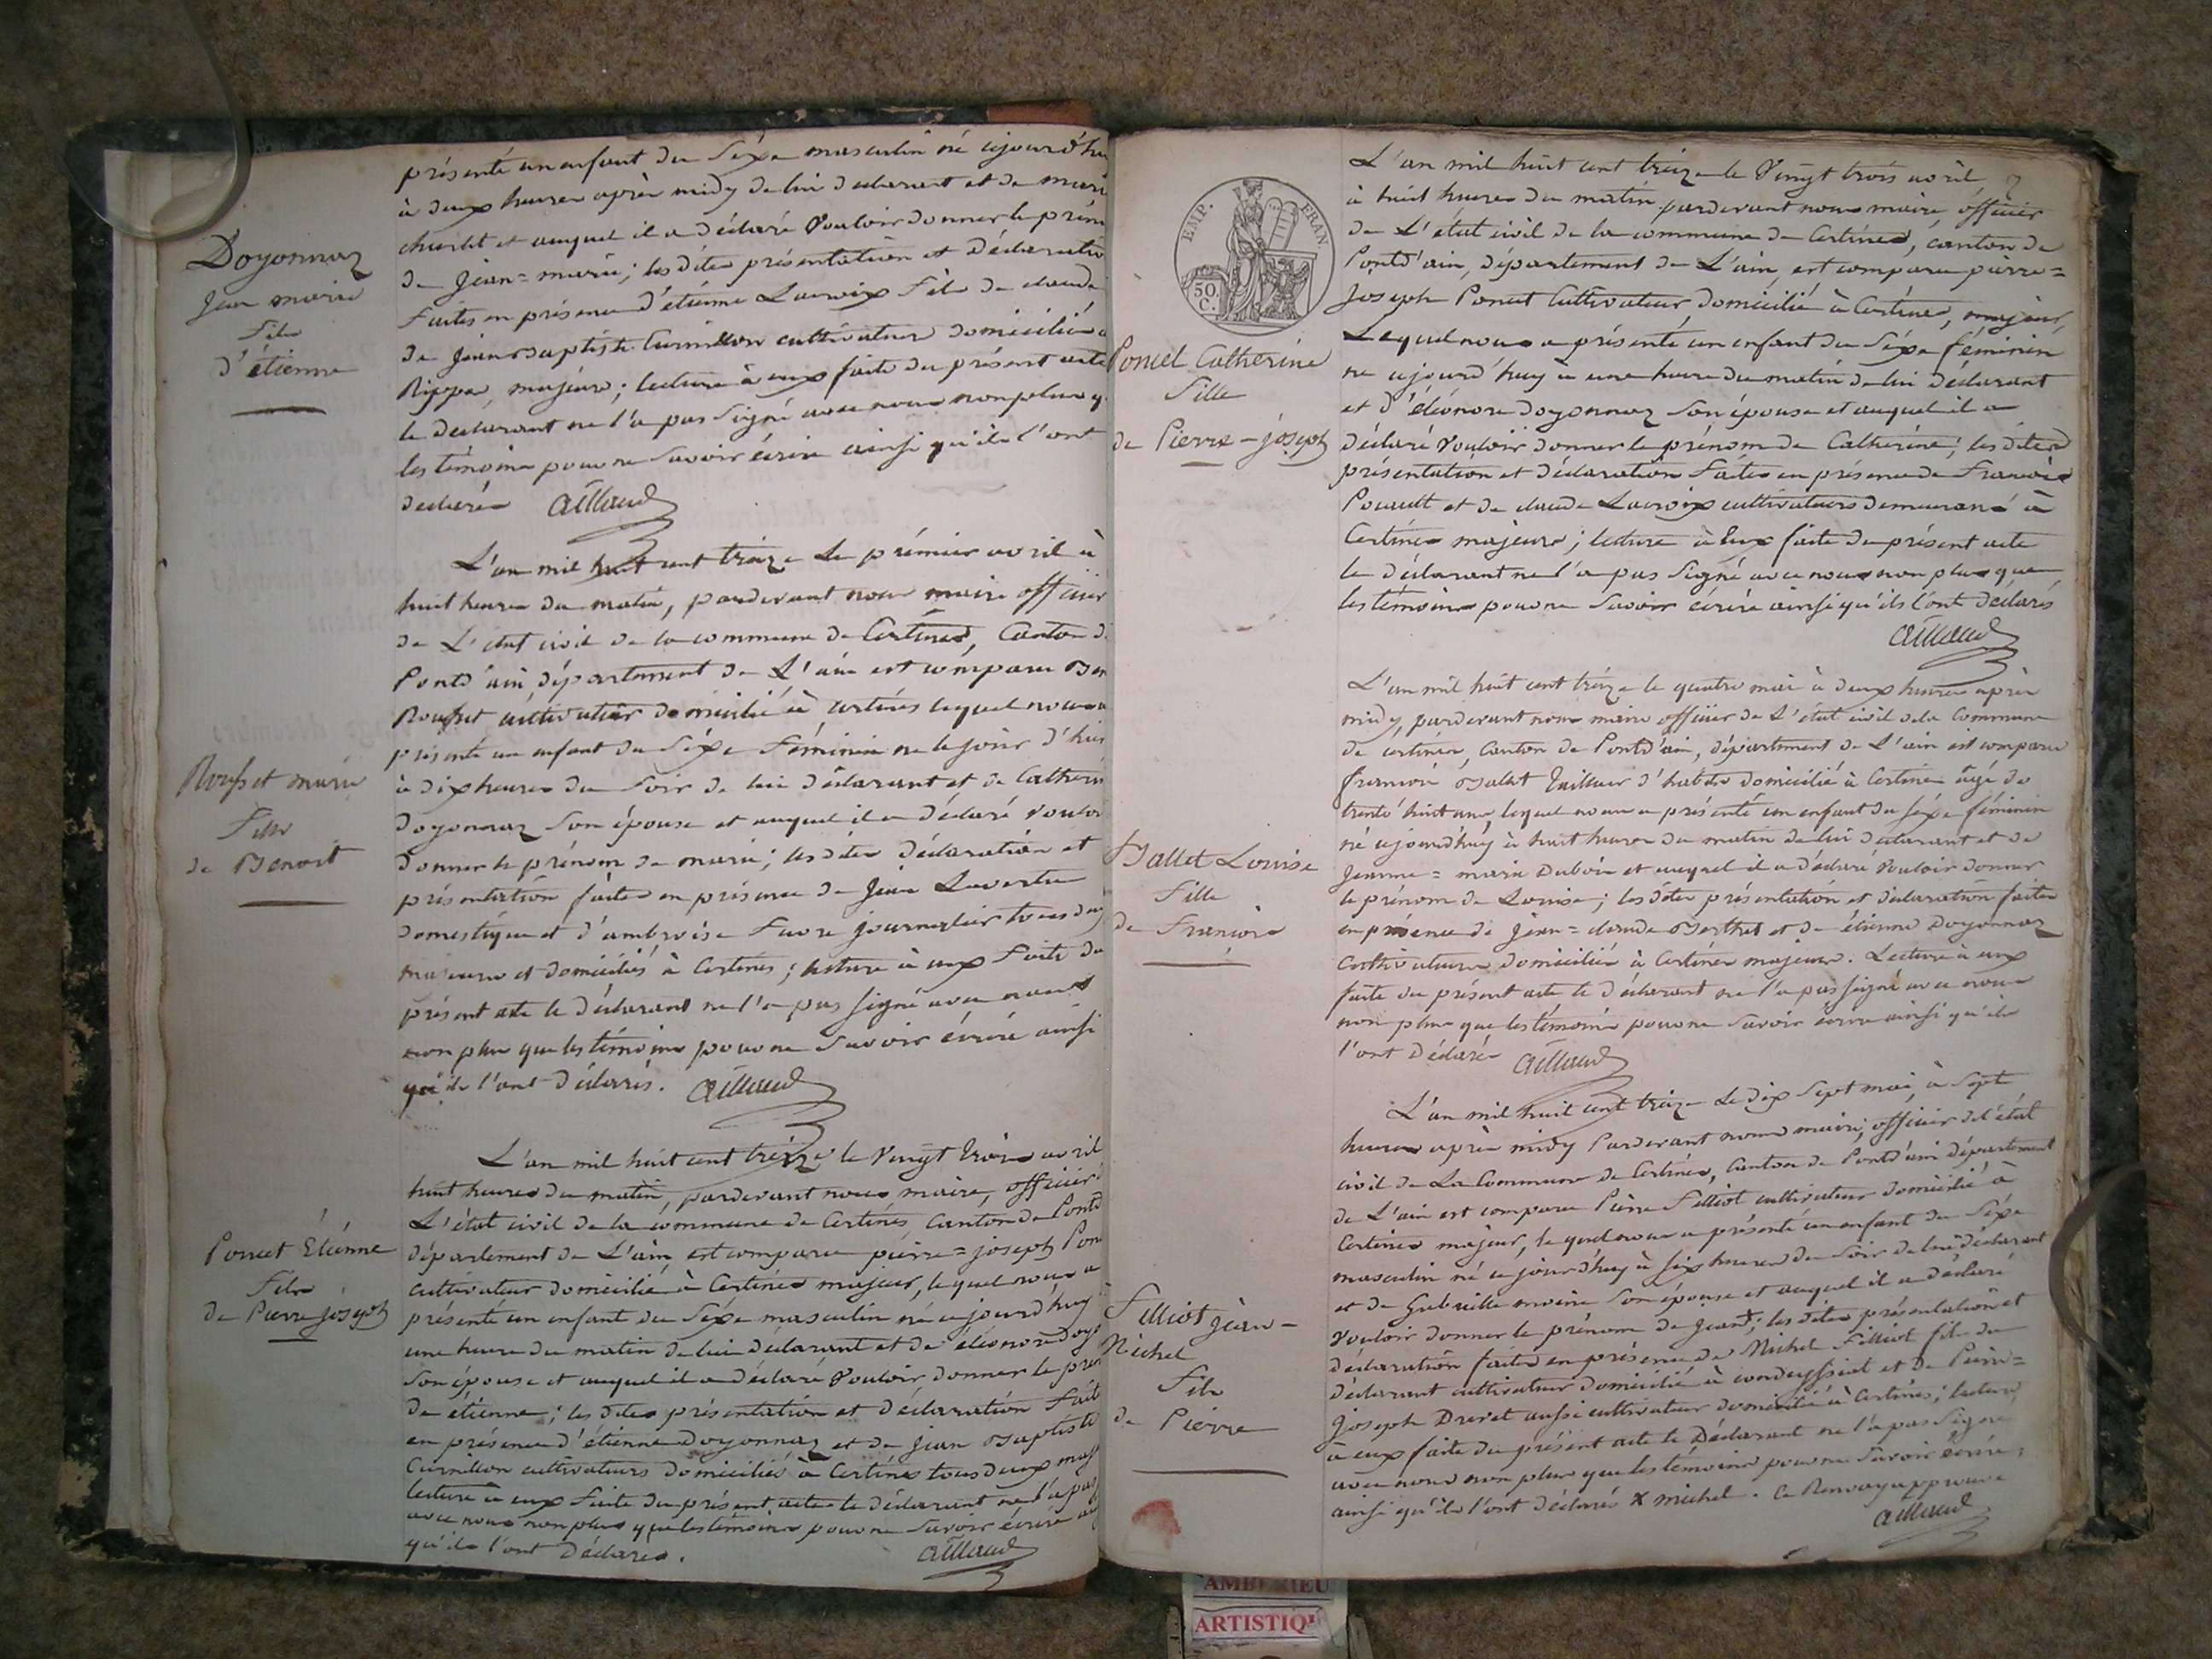 Doyonnaz
Jean marie
fils
d'étienne
présenté un enfant du Séxe masculin né ajourd'hu
à deux heures après midy de lui déclarant et de
et auquel il a déclaré vouloir donner le prén
de jean=marie; les dites présentation et déclaration
faites en présence d'étienne Lacroix fils de claude
de jean Baptiste Curnillon cultivateur domicilié a
majeurs; lecture à eux faite du présent acte
le déclarant ne l'a pas signé avec nous non plus q
les témoins pour ne savoir écrire ainsi qu'ils l'ont
declarés Aillaud
L'an mil huit cent treize le prémier avril à
huit heures du matin, pardevant nous maire officier
de L'état civil de la commune de Certines, Canton d
Pontd'ain, département de L'ain est comparu Ben
Rousset cultivateur domicilié à certines lequel nous a
présenté un enfant du Séxe féminin né le jour d'hier
à dix heures du soir de lui déclarant et de Catherin
doyonnaz son épouse et auquel il a déclaré vouloi
donner le prénom de marie; les dites déclaration et
présentation faites en présence de jean
domestique et d'ambroise favre journalier tous deux
majeurs et domiciliés à Certines; lecture à eux faite du
présent acte le déclarant ne l'a pas signé avec nous
non plus que les témoins pour ne savoir écrire ainsi
qu'ils l'ont déclarés. Aillaud
Rousset marie
fille
de Benoit
L'an mil huit cent treize le vingt trois avril
huit heures du matin, pardevant nous maire, officier
L'état civil de la commune de Certines, Canton de Pontd
département de L'ain, est comparu pierre=joseph Pon
cultivateur domicilié à Certines majeur, lequel nous a
présenté un enfant du Séxe masculin né aujourd'huy
une heure du matin de lui déclarant et de éléonore doyo
son épouse et auquel il a déclaré vouloir donner le prén
de étienne; les dites présentation et déclaration fait
en présence d'étienne doyonnaz et de jean Baptiste
Curnillon cultivateurs domiciliés à Certines tous deux maj
lecture à eux faite du présent acte le déclarant ne l'a pas
avec nous non plus que les témoins pour ne savoir écrire
qu'ils l'ont déclarés. Aillaud
Poncet Etienne
fils
de Pierre joseph
EMP. FRAN.
50 C.
Poncet Catherine
fille
de Pierre=joseph
L'an mil huit cent treize le vingt trois avril
à huit heures du matin pardevant nous maire, officier
de L'état civil de la commune de Certines, canton de
Pontd'ain, département de L'ain, est comparu pierre=
joseph Poncet Cultivateur, domicilié à Certines, majeur,
Lequel nous a présenté un enfant du Séxe féminin
né ajourd'huy à une heure du matin de lui déclarant
et d'éléonore doyonnaz son épouse et auquel il a
déclaré vouloir donner le prénom de Catherine; les dites
présentation et déclaration faites en présence de François
et de claude Lacroix cultivateurs demeurant à
Certines majeurs; lecture à Eux faite du présent acte
le déclarant ne l'a pas signé avec nous non plus que
les témoins pour ne savoir écrire ainsi qu'ils l'ont déclarés
Aillaud
L'an mil huit cent treize le quatre mai à deux heures après
midy, pardevant nous maire officier de L'état civil de la Commune
de certines, Canton de Pontd'ain, département de L'ain est comparu
françois Ballet tailleur d'habits domicilié à Certines âgé de
trente huit ans, lequel nous a présenté un enfant du séxe féminin
né ajourd'huy à huit heures du matin de lui déclarant et de
Jeanne=marie Dubois et auquel il a déclaré vouloir donner
le prénom de Louise; les dites présentation et déclaration faites
en présence de jean=claude Berthet et de étienne Doyonnaz
cultivateurs domiciliés à Certines majeurs. Lecture à eux
faite du présent acte le déclarant ne l'a pas signé avec nous
non plus que les témoins pour ne savoir écrire ainsi qu'ils
l'ont déclarés Aillaud
Ballet Louise
fille
de François
L'an mil huit cent treize le dix sept mai, à sept
heures après midy Pardevant nous maire, officier de l'état
civil de La Commune de Certines, Canton de Pontd'ain département
de L'ain est comparu Pierre filliot cultivateur domicilié à
Certines majeur, lequel nous a présenté un enfant du Séxe
masculin né ajourd'huy à six heures du soir de lui déclarant
et de Gabrielle moine son épouse et auquel il a déclaré
vouloir donner le prénom de jean; les dites présentation et
déclaration faites en présence de Michel filliot fils du
déclarant cultivateur domicilié à condeyssiat et de Pierre=
joseph Drevet aussi cultivateur domicilié à Certines; lecture
à eux faite du présent acte le Déclarant ne l'a pas signé
avec nous non plus que les témoins pour ne savoir écrire,
ainsi qu'ils l'ont déclarés x michel. Ce Renvoy approuvé
Aillaud
filliot jean=
Michel
fils
de Pierre
AMBERIEU
ARTISTIQU